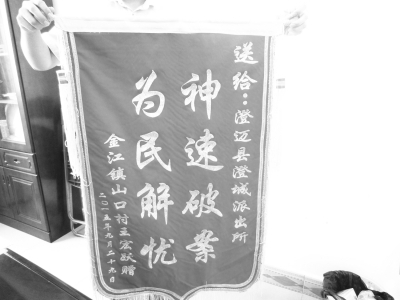 送给：澄迈县澄城派出所
神速破案
为民解忧
金江镇山口村王宏猷赠
二〇一五年九月二十九日